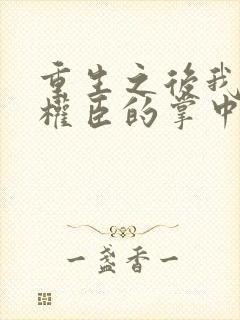 重生之後我
權臣的掌中
一盞香一